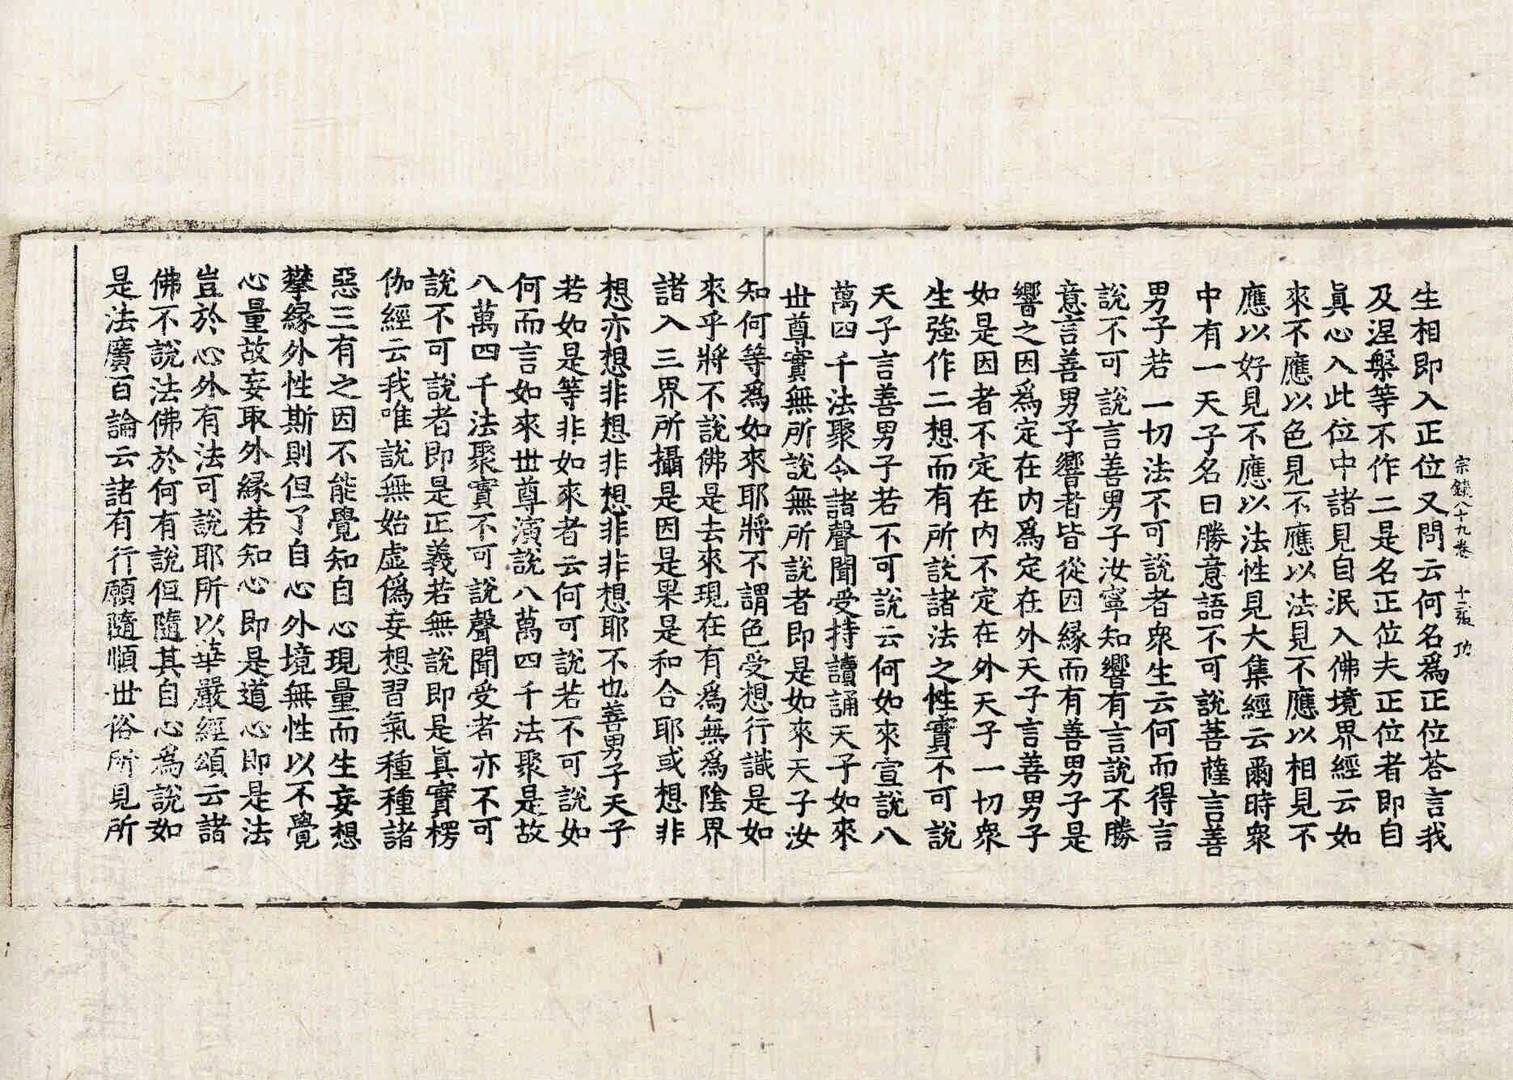 生相即入正位又問云何名爲正位荅言我
宗鏡八十九卷 十二張 功
及涅槃等不作二是名正位夫正位者即自
眞心入此位中諸見自泯入佛境界經云如
來不應以色見不應以法見不應以相見不
應以好見不應以法性見大集經云爾時衆
中有一天子名曰勝意語不可說菩薩言善
男子若一切法不可說者衆生云何而得言
說不可說言善男子汝寧知響有言說不勝
意言善男子響者皆從因緣而有善男子是
響之因爲定在內爲定在外天子言善男子
如是因者不定在內不定在外天子一切衆
生強作二想而有所說諸法之性實不可說
天子言善男子若不可說云何如來宣說八
萬四千法聚令諸聲聞受持讀誦天子如來
世尊實無所說無所說者即是如來天子汝
知何等爲如來耶將不謂色受想行識是如
來乎將不說佛是去來現在有爲無爲陰界
諸入三界所攝是因是果是和合耶或想非
想亦想非想非想非非想耶不也善男子天子
若如是等非如來者云何可說若不可說如
何而言如來世尊演說八萬四千法聚是故
八萬四千法聚實不可說聲聞受者亦不可
說不可說者即是正義若無說即是眞實楞
伽經云我唯說無始虛僞妄想習氣種種諸
惡三有之因不能覺知自心現量而生妄想
攀緣外性斯則但了自心外境無性以不覺
心量故妄取外緣若知心即是道心即是法
豈於心外有法可說耶所以華嚴經頌云諸
佛不說法佛於何有說但隨其自心爲說如
是法廣百論云諸有行願隨順世俗所見所